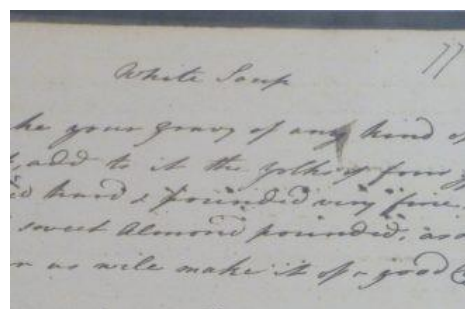 77
White Soup
ke your gravy of any kind of
add to it the yolks of four
hard & pounded very fine
sweet Almond pounded, as
as will make it of a good